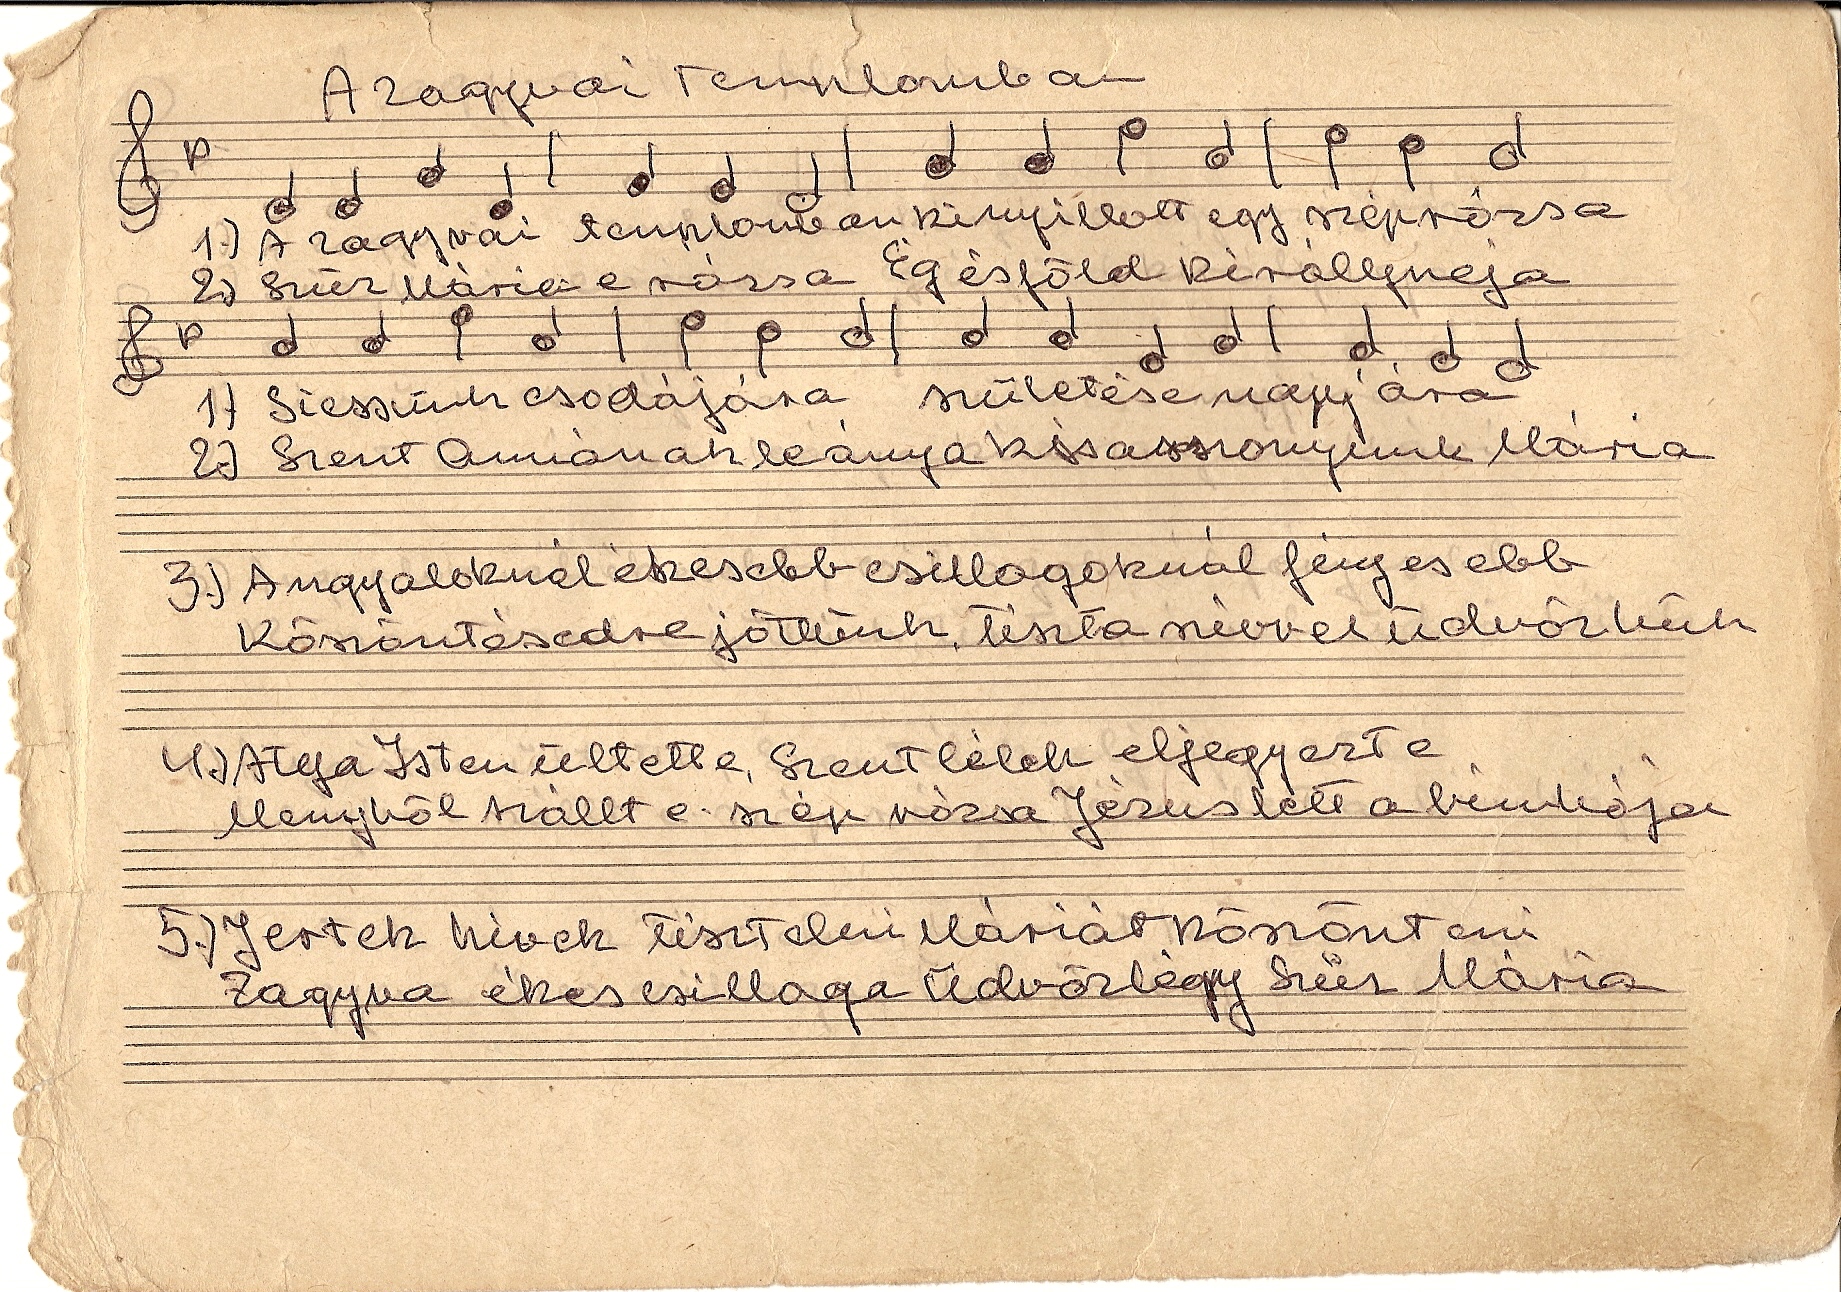 A zagyvai templomban
1.) A zagyvai templomban kinyillott egy szép rózsa
2.) Szűz Mária e rózsa Ég és föld királynéja
1.) Siessünk csodájára születése napjára
2.) Szent Annának leánya kisasszonyunk Mária
3.) Angyaloknál ékesebb csillagoknál fényesebb
Köszöntésedre jöttünk, tiszta szívvel üdvözlünk
4.) Atya Isten ültette, Szentlélek eljegyezte
Menyből szállt e szép rózsa Jézus lett a bimbója
5.) Jertek hívek tisztelni Máriát köszönteni
Zagyva ékes csillaga Üdvözlégy Szűz Mária